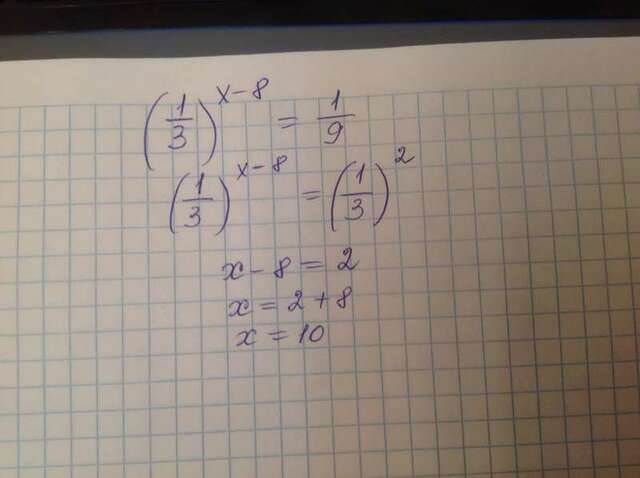 (1/3)^(x-8) = 1/9
(1/3)^(x-8) = (1/3)^2
x - 8 = 2
x = 2 + 8
x = 10